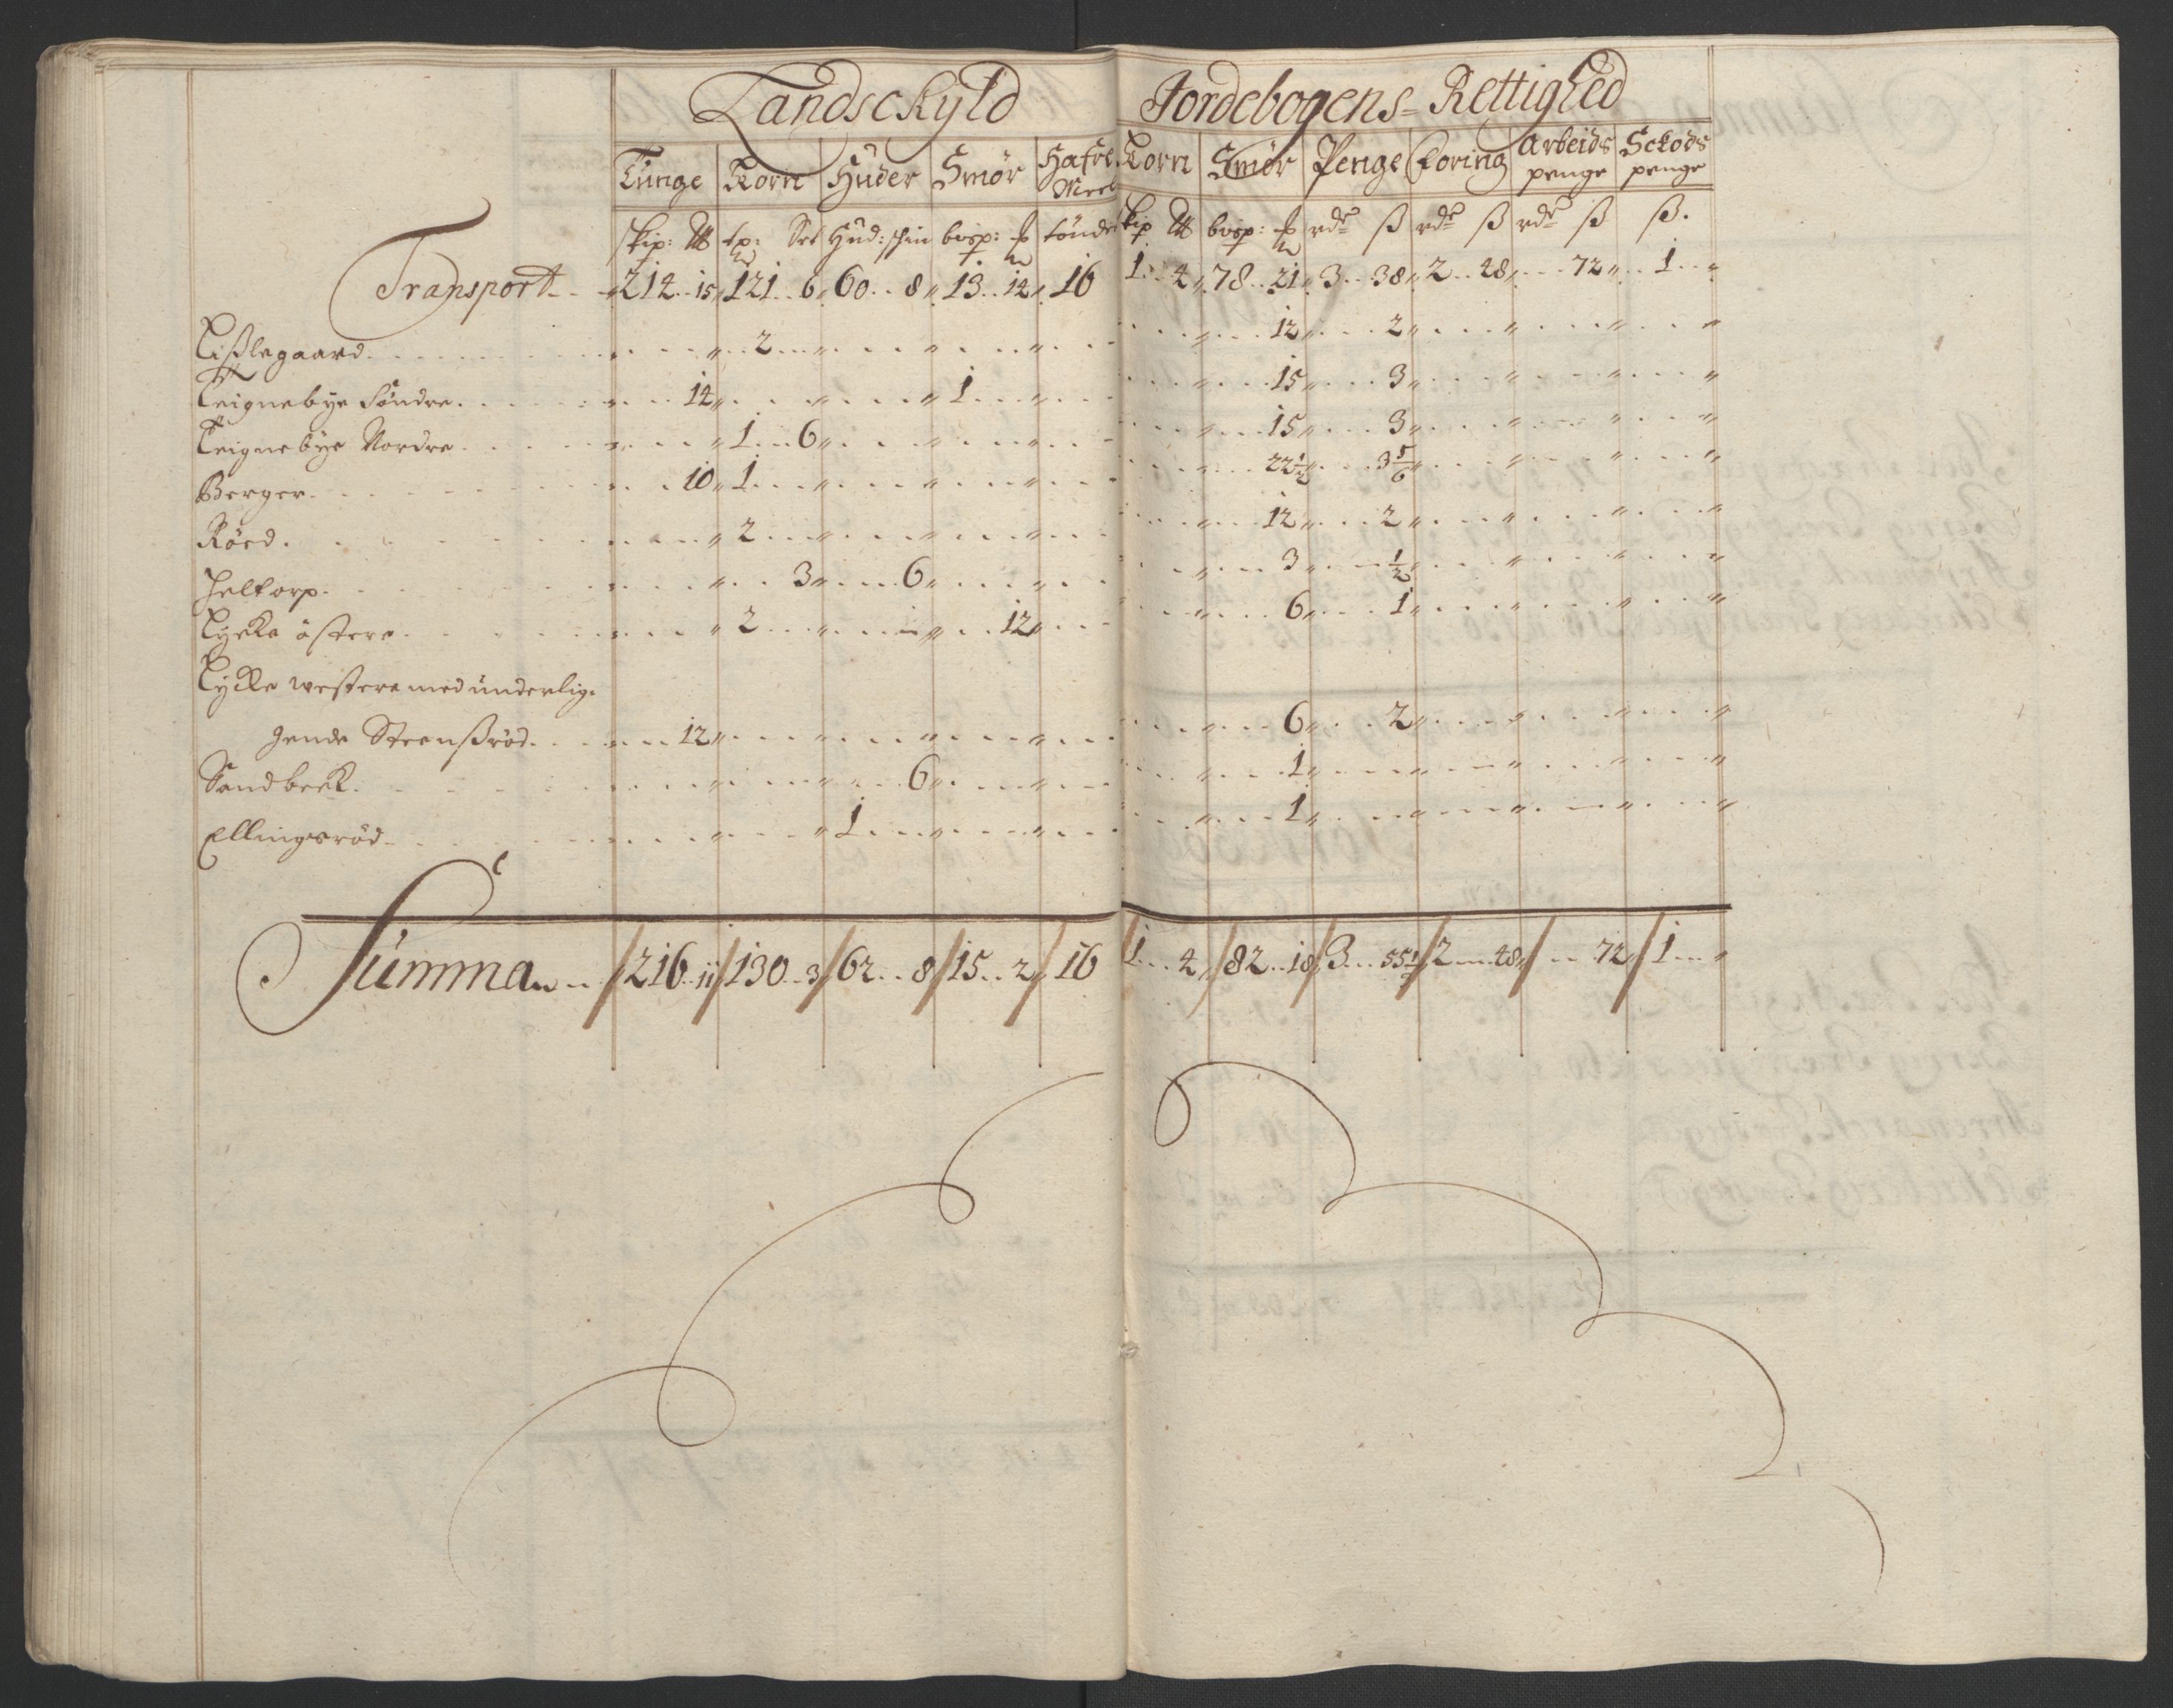 Landsckÿld Jordebogens=Rettighed
Tunge Korn Huder Smör Hafre Meel Korn Smör Penge Foring Arbeids penge Sckods penge
skip: ℔ tp: Set Hud: skin bvsp: ℔ tönder skip ℔ bvsp: ℔ rdr ß rdr ß rdr ß ß.
Transport 214 15 121 6 60 8 13 14 16 1 4 78 21 3 38 2 48 72 1
Kißlegaard 2 12 2
Teignebÿe Söndre 14 1 15 3
Teignebÿe Nordre 1 6 15 3
Berger 10 1 22½ 3 5/6
Röed 2 12 2
Heltorp 3 6 3 ½
Lÿcke östere 2 12 6 1
Lÿcke westere med underlig=
gende Steenßröd 12 6 2
Sandbeck 6 1
Ellingsröd 1 1
Summa 216 11 130 3 62 8 15 2 16 1 4 82 18 3 55½ 2 48 72 1